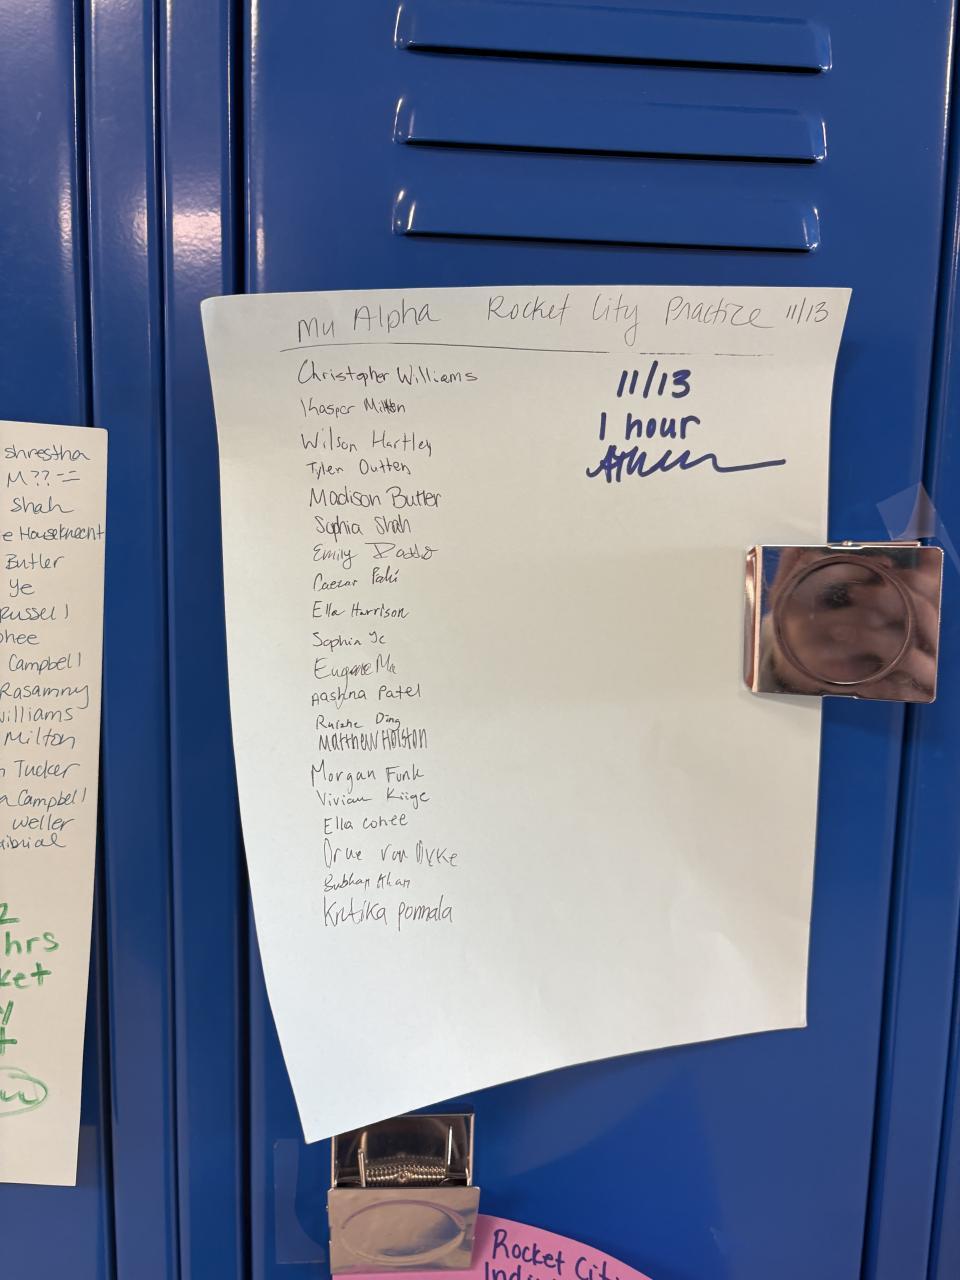 Mu Alpha Rocket City Practice 11/13
Christopher Williams
Kasper Milton
Wilson Hartley
Tyler Outten
Madison Butler
Sophia Shah
Emily
Caezar
Ella Harrison
Sophia Ye
Eugene Ma
Aashna Patel
Ruizhe Ding
Matthew Holston
Morgan Funk
Vivian Kiige
Ella Cohee
Van Dyke
Subhan Khan
Kritika Ponnala
11/13
1 hour
shrestha
M??--
Shah
e Houseknecht
Butler
Ye
Russell
ohee
Campbell
Rasamny
Williams
Milton
n Tucker
a Campbell
weller
2
hrs
ket
y
t
Rocket City
Indiv